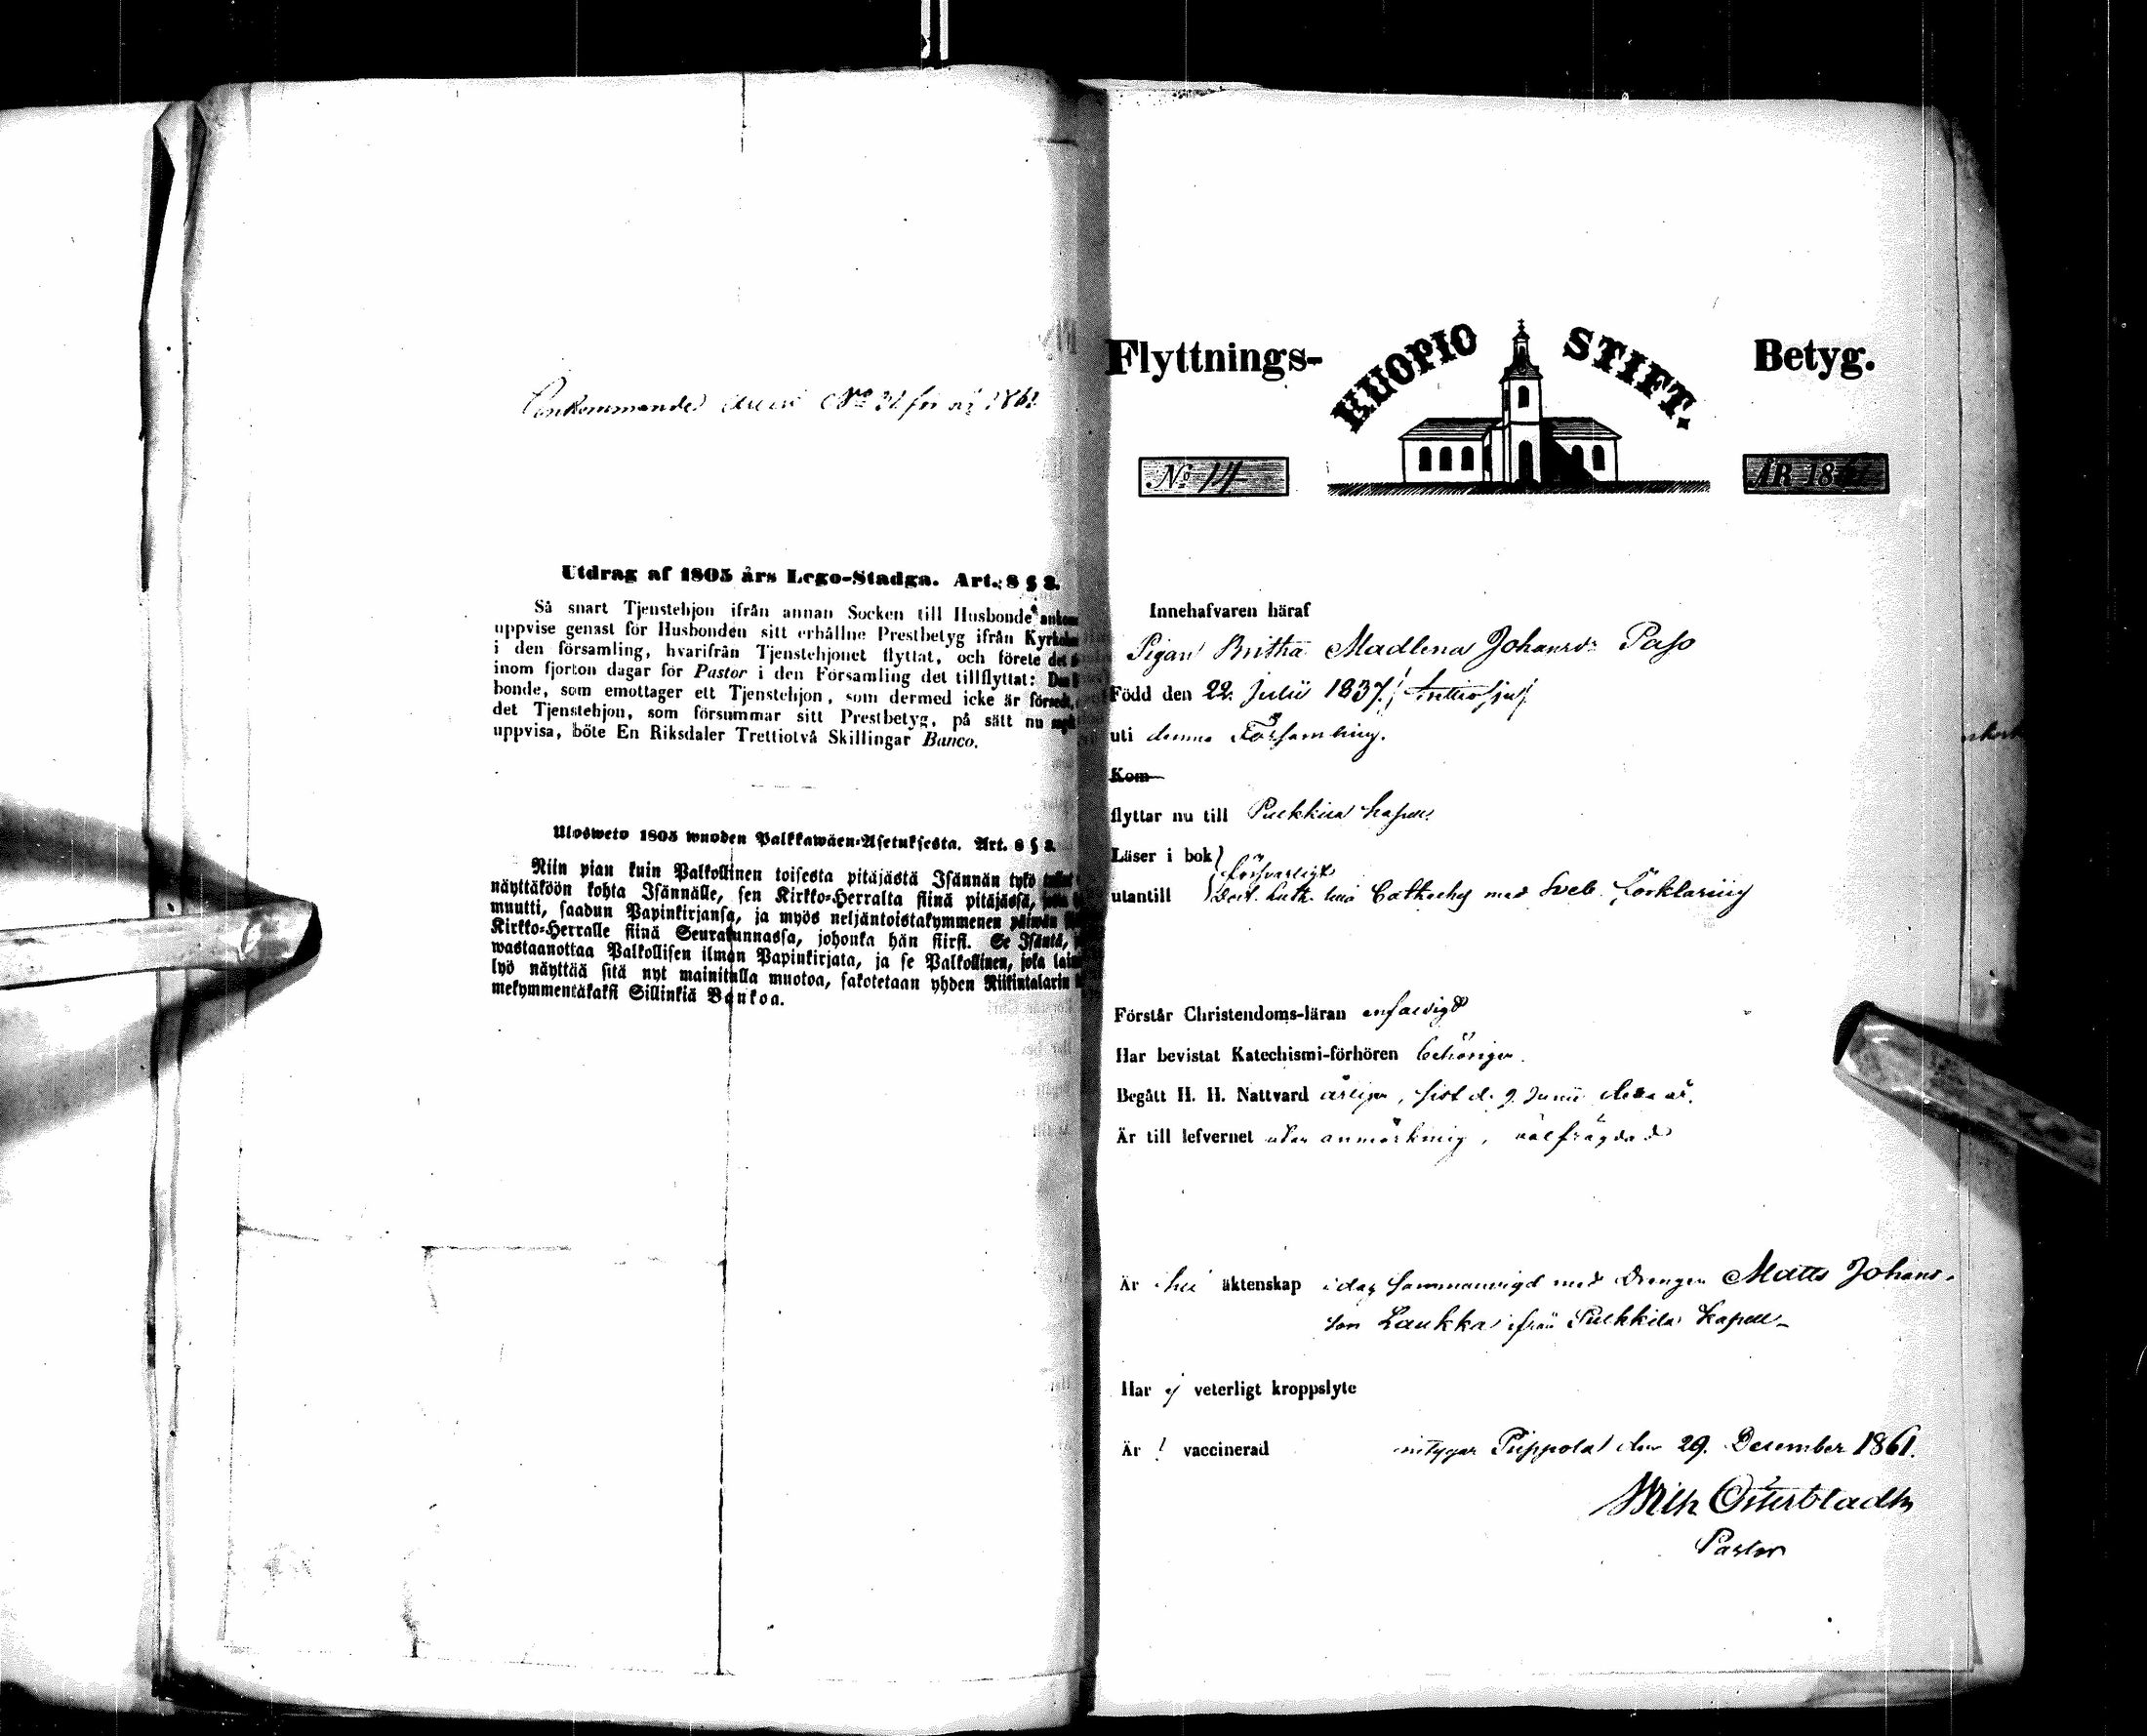 Ankommande attest No 31 för år 1862
Utdrag af 1805 års Lego-Stadga. Art. 8 § 3.
Så snart Tjenstehjon ifrån annan Socken till Husbonde
uppvise genast för Husbonden sitt erhållne Prestbetyg ifrån
i den församling, hvarifrån Tjenstehjonet flyttat, och förete det
inom fjorton dagar för Pastor i den Församling det tillflyttat:
bonde, som emottager ett Tjenstehjon, som dermed icke är försedt,
det Tjenstehjon, som försummar sitt Prestbetyg, på sätt nu
uppvisa, böte En Riksdaler Trettiotvå Skillingar Banco.
Ulosweto 1805 wuoden Palkkawäen-Asetuksesta. Art. 8 § 3.
Niin pian kuin Palkollinen toisesta pitäjästä Isännän tykö
näyttäköön kohta Isännälle, sen Kirkko-Herralta siinä pitäjässä,
muutti, saadun Papinkirjansa, ja myös neljäntoistakymmenen päiwän
Kirkko-Herralle siinä Seurakunnassa, johonka hän siirsi. Se Isäntä,
wastaanottaa Palkollisen ilman Papinkirjata, ja se Palkollinen, joka
lyö näyttää sitä nyt mainitulla muotoa, sakotetaan yhden Riikintalarin
mekymmentäkaksi Sillinkiä Bankoa.
Flyttnings- KUOPIO STIFT. Betyg.
No 14 ÅR 1861
Innehafvaren häraf
Pigan Britha Madlena Johansdr Paso
Född den 22 Julii 1837 / trettiosju /
uti denna Församling.
Kom
flyttar nu till Pulkkila Kapell
Läser i bok försvarligt
utantill Doct. Luth. lilla Cathechs med Sveb. förklaring
Förstår Christendoms-läran enfaldigt
Har bevistat Katechismi-förhören behörigen.
Begått H. H. Nattvard årligen, sist d. 9 Junii detta år.
Är till lefvernet utan anmärkning, välfrägdad
Är till äktenskap idag sammanvigd med Drengen Matts Johans-
son Laukka ifrån Pulkkila Kapell
Har ej veterligt kroppslyte
Är vaccinerad intygar Piippola den 29. December 1861.
Wilh Österbladh
Pastor